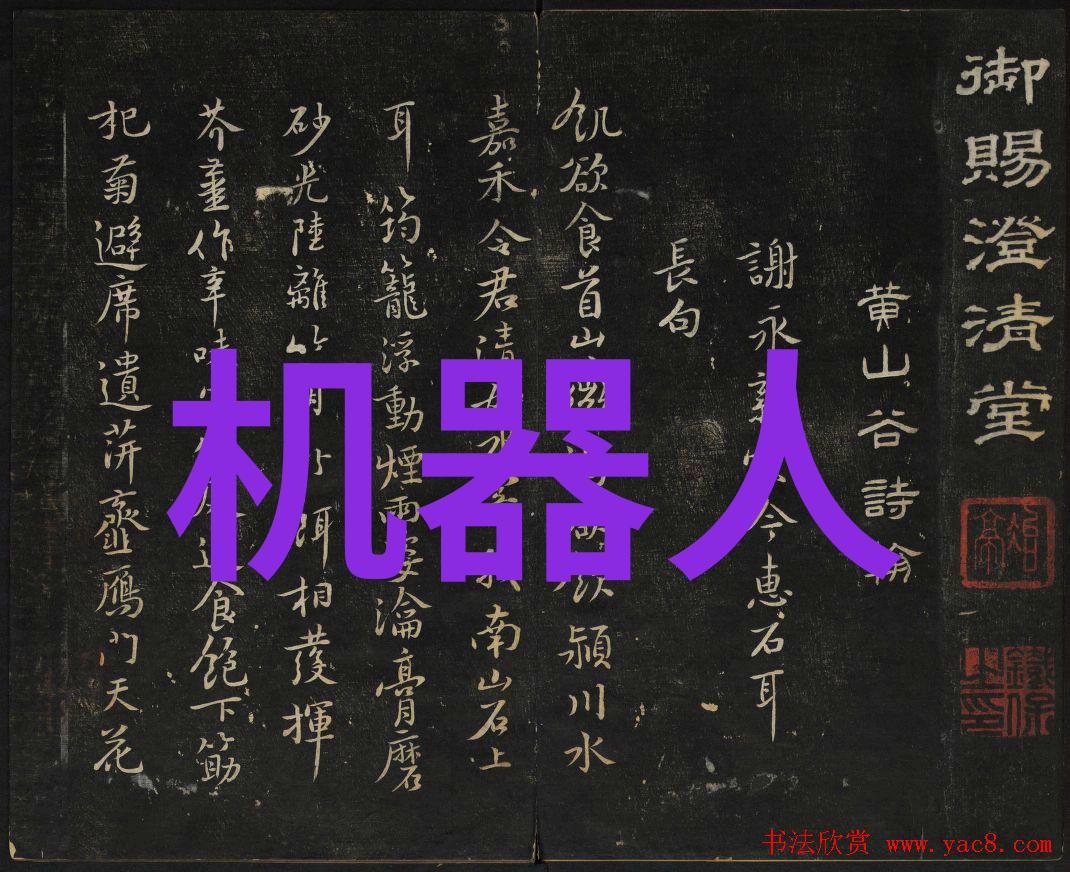 御賜澄清堂
黄山谷詩翰
謝永今惠石耳
長句
飢欲食首山潁川水
嘉禾令君清南山石上
耳筠籠浮動煙雨淪膏磨
砂光陸離餌相發揮
芥薑作辛食飽下筯
杞菊避席遺萍虀鴈門天花
机器人
书法欣赏 www.yac8.com